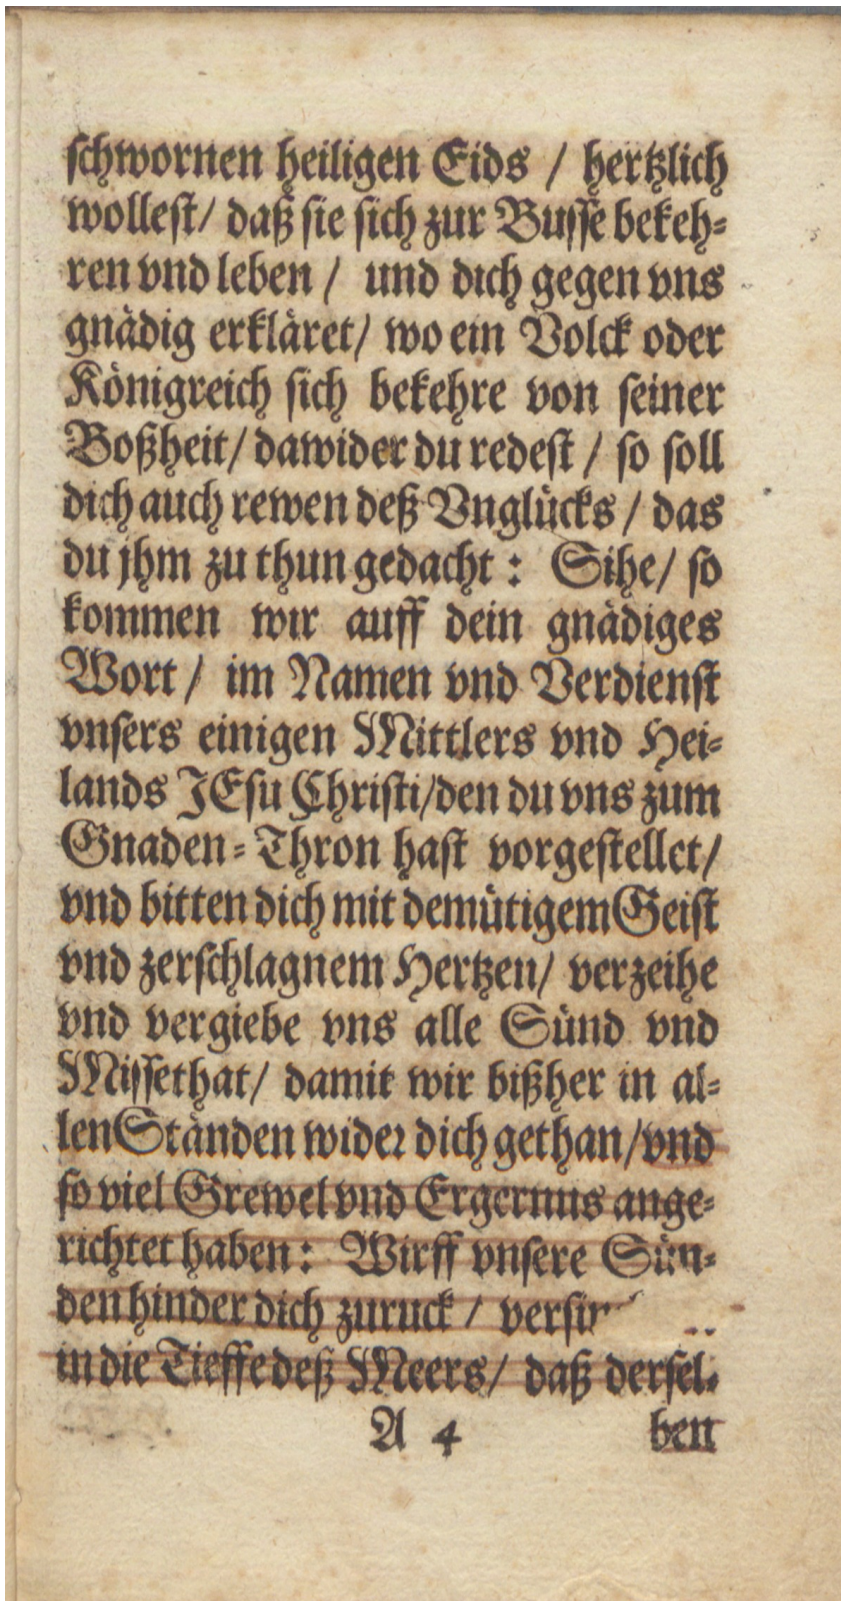 schwornen heiligen Eids / hertzlich
wollest/ daß sie sich zur Busse bekeh-
ren vnd leben / und dich gegen vns
gnädig erkläret/ wo ein Volck oder
Königreich sich bekehre von seiner
Boßheit/ dawider du redest / so soll
dich auch rewen deß Vnglücks / das
du jhm zu thun gedacht: Sihe/ so
kommen wir auff dein gnädiges
Wort / im Namen vnd Verdienst
vnsers einigen Mittlers vnd Hei-
lands JEsu Christi/ den du vns zum
Gnaden-Thron hast vorgestellet/
vnd bitten dich mit demütigem Geist
vnd zerschlagnem Hertzen/ verzeihe
vnd vergiebe vns alle Sünd vnd
Missethat/ damit wir bißher in al-
len Ständen wider dich gethan/ vnd
so viel Grewel vnd Ergernus ange-
richtet haben: Wirff vnsere Sün-
den hinder dich zuruck /
in die Tieffe deß Meers/ daß dersel-
A 4 ben